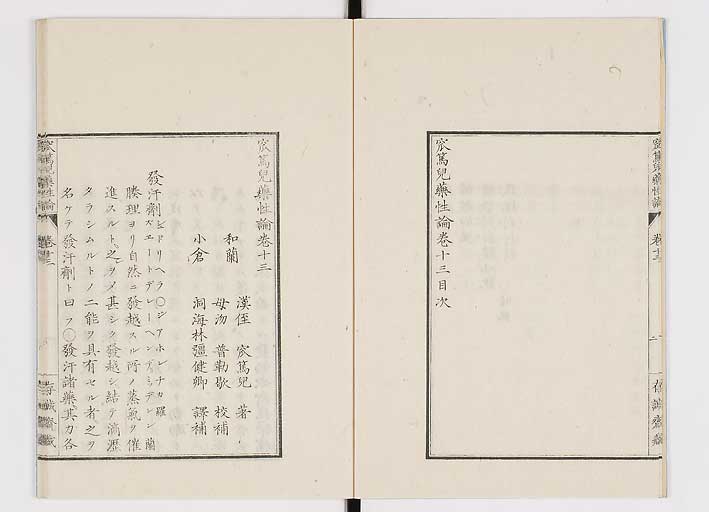 窊篤兒藥性論 卷十三
窊篤兒藥性論卷十三目次
窊篤兒藥性論卷十三
和蘭 漢侄 窊篤兒 著
母汭 普勒歇 校補
小倉 洞海林彊健卿 譯補
發汗劑 ヒドリヘラ〇ジアホレナカ羅
ズエートデレーヘンデミデレン蘭
腠理ヨリ自然ニ發越スル所ノ蒸氣ヲ催
進スルト之ヲメ甚シク發越シ結テ滴瀝
タラシムルトノ二能ヲ具有セル者之ヲ
名ケテ發汗劑ト曰フ〇發汗諸藥其力各
窊篤兒藥性論